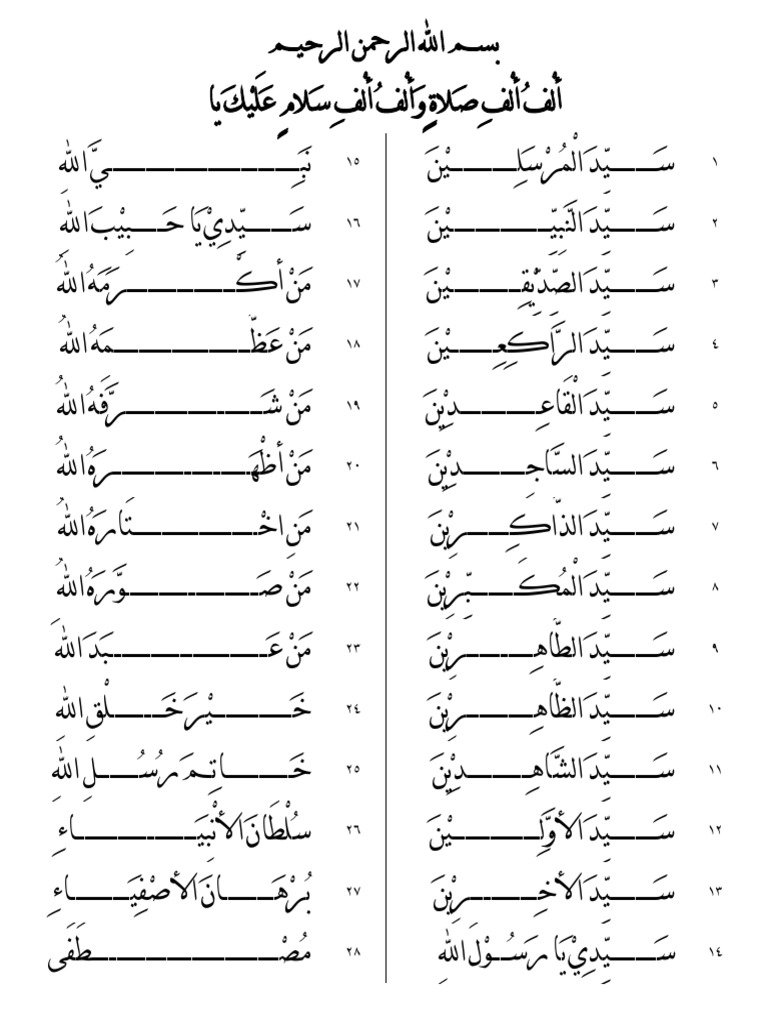 بسم الله الرحمن الرحيم
أَلْفُ أَلْفِ صَلَاةٍ وَأَلْفُ أَلْفِ سَلَامٍ عَلَيْكَ يَا
١ سَيِّدَ الْمُرْسَلِيْنَ
٢ سَيِّدَ النَّبِيِّيْنَ
٣ سَيِّدَ الصِّدِّيْقِيْنَ
٤ سَيِّدَ الرَّاكِعِيْنَ
٥ سَيِّدَ الْقَاعِدِيْنَ
٦ سَيِّدَ السَّاجِدِيْنَ
٧ سَيِّدَ الذَّاكِرِيْنَ
٨ سَيِّدَ الْمُكَبِّرِيْنَ
٩ سَيِّدَ الطَّاهِرِيْنَ
١٠ سَيِّدَ الظَّاهِرِيْنَ
١١ سَيِّدَ الشَّاهِدِيْنَ
١٢ سَيِّدَ الأَوَّلِيْنَ
١٣ سَيِّدَ الأَخِرِيْنَ
١٤ سَيِّدِيْ يَا رَسُوْلَ اللهِ
١٥ نَبِيَّ اللهِ
١٦ سَيِّدِيْ يَا حَبِيْبَ اللهِ
١٧ مَنْ أَكْرَمَهُ اللهُ
١٨ مَنْ عَظَّمَهُ اللهُ
١٩ مَنْ شَرَّفَهُ اللهُ
٢٠ مَنْ أَظْهَرَهُ اللهُ
٢١ مَنِ اخْتَارَهُ اللهُ
٢٢ مَنْ صَوَّرَهُ اللهُ
٢٣ مَنْ عَبَدَ اللهَ
٢٤ خَيْرَ خَلْقِ اللهِ
٢٥ خَاتِمَ رُسُلِ اللهِ
٢٦ سُلْطَانَ الأَنْبِيَاءِ
٢٧ بُرْهَانَ الأَصْفِيَاءِ
٢٨ مُصْطَفَى